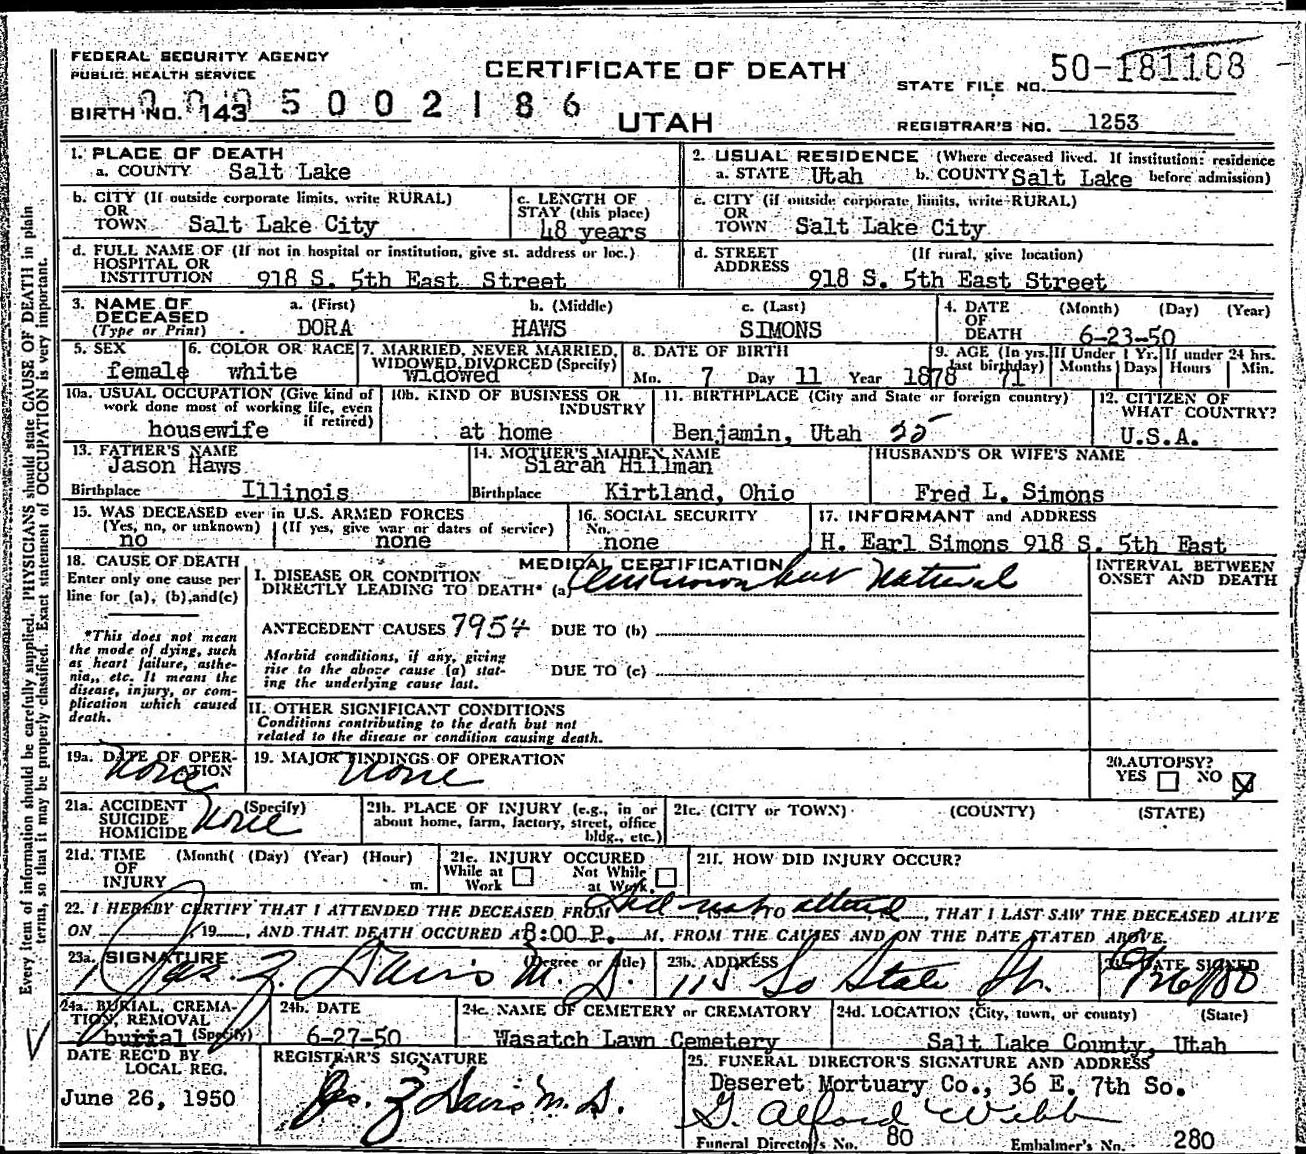 FEDERAL SECURITY AGENCY
PUBLIC HEALTH SERVICE
CERTIFICATE OF DEATH
STATE FILE NO. 50-181108
BIRTH NO. 143 5002186
UTAH
REGISTRAR'S NO. 1253
1. PLACE OF DEATH
a. COUNTY Salt Lake
2. USUAL RESIDENCE (Where deceased lived. If institution: residence before admission)
a. STATE Utah b. COUNTY Salt Lake
b. CITY (If outside corporate limits, write RURAL)
OR
TOWN Salt Lake City
c. LENGTH OF
STAY (this place)
48 years
c. CITY (if outside corporate limits, write RURAL)
OR
TOWN Salt Lake City
d. FULL NAME OF (If not in hospital or institution, give st. address or loc.)
HOSPITAL OR
INSTITUTION 918 S. 5th East Street
d. STREET (If rural, give location)
ADDRESS 918 S. 5th East Street
3. NAME OF
DECEASED
(Type or Print)
a. (First) b. (Middle) c. (Last)
DORA HAWS SIMONS
4. DATE (Month) (Day) (Year)
OF
DEATH 6-23-50
5. SEX
female
6. COLOR OR RACE
white
7. MARRIED, NEVER MARRIED,
WIDOWED, DIVORCED (Specify)
widowed
8. DATE OF BIRTH
Mo. 7 Day 11 Year 1878
9. AGE (In yrs. last birthday)
71
If Under 1 Yr.
Months Days
If under 24 hrs.
Hours Min.
10a. USUAL OCCUPATION (Give kind of
work done most of working life, even
if retired)
housewife
10b. KIND OF BUSINESS OR
INDUSTRY
at home
11. BIRTHPLACE (City and State or foreign country)
Benjamin, Utah
12. CITIZEN OF
WHAT COUNTRY?
U.S.A.
13. FATHER'S NAME
Jason Haws
Birthplace Illinois
14. MOTHER'S MAIDEN NAME
Siarah Hillman
Birthplace Kirtland, Ohio
HUSBAND'S OR WIFE'S NAME
Fred L. Simons
15. WAS DECEASED ever in U.S. ARMED FORCES
(Yes, no, or unknown) (If yes, give war or dates of service)
no none
16. SOCIAL SECURITY
No.
none
17. INFORMANT and ADDRESS
H. Earl Simons 918 S. 5th East
18. CAUSE OF DEATH
Enter only one cause per
line for (a), (b), and (c)
*This does not mean
the mode of dying, such
as heart failure, asthe-
nia, etc. It means the
disease, injury, or com-
plication which caused
death.
MEDICAL CERTIFICATION
I. DISEASE OR CONDITION
DIRECTLY LEADING TO DEATH* (a) Unknown but Natural
ANTECEDENT CAUSES 7954 DUE TO (b)
Morbid conditions, if any, giving
rise to the above cause (a) stat-
ing the underlying cause last.
DUE TO (c)
II. OTHER SIGNIFICANT CONDITIONS
Conditions contributing to the death but not
related to the disease or condition causing death.
INTERVAL BETWEEN
ONSET AND DEATH
19a. DATE OF OPER-
ATION
None
19. MAJOR FINDINGS OF OPERATION
None
20. AUTOPSY?
YES NO
21a. ACCIDENT (Specify)
SUICIDE
HOMICIDE None
21b. PLACE OF INJURY (e.g., in or
about home, farm, factory, street, office
bldg., etc.)
21c. (CITY or TOWN) (COUNTY) (STATE)
21d. TIME (Month( (Day) (Year) (Hour)
OF
INJURY m.
21e. INJURY OCCURED
While at Work Not While at Work
21f. HOW DID INJURY OCCUR?
22. I HEREBY CERTIFY THAT I ATTENDED THE DECEASED FROM Did not TO attend, THAT I LAST SAW THE DECEASED ALIVE
ON 19 , AND THAT DEATH OCCURED AT 8:00 P. M. FROM THE CAUSES AND ON THE DATE STATED ABOVE.
23a. SIGNATURE (Degree or title)
Jas. Z. Davis M. D.
23b. ADDRESS
115 So State St.
23c. DATE SIGNED
6/26/50
24a. BURIAL, CREMA-
TION, REMOVAL
(Specify)
burial
24b. DATE
6-27-50
24c. NAME OF CEMETERY or CREMATORY
Wasatch Lawn Cemetery
24d. LOCATION (City, town, or county) (State)
Salt Lake County, Utah
DATE REC'D BY
LOCAL REG.
June 26, 1950
REGISTRAR'S SIGNATURE
Jas. Z Davis M. D.
25. FUNERAL DIRECTOR'S SIGNATURE AND ADDRESS
Deseret Mortuary Co., 36 E. 7th So.
G. Alford Webb
Funeral Director's No. 80 Embalmer's No. 280
Every item of information should be carefully supplied. PHYSICIANS should state CAUSE OF DEATH in plain
terms, so that it may be properly classified. Exact statement of OCCUPATION is very important.